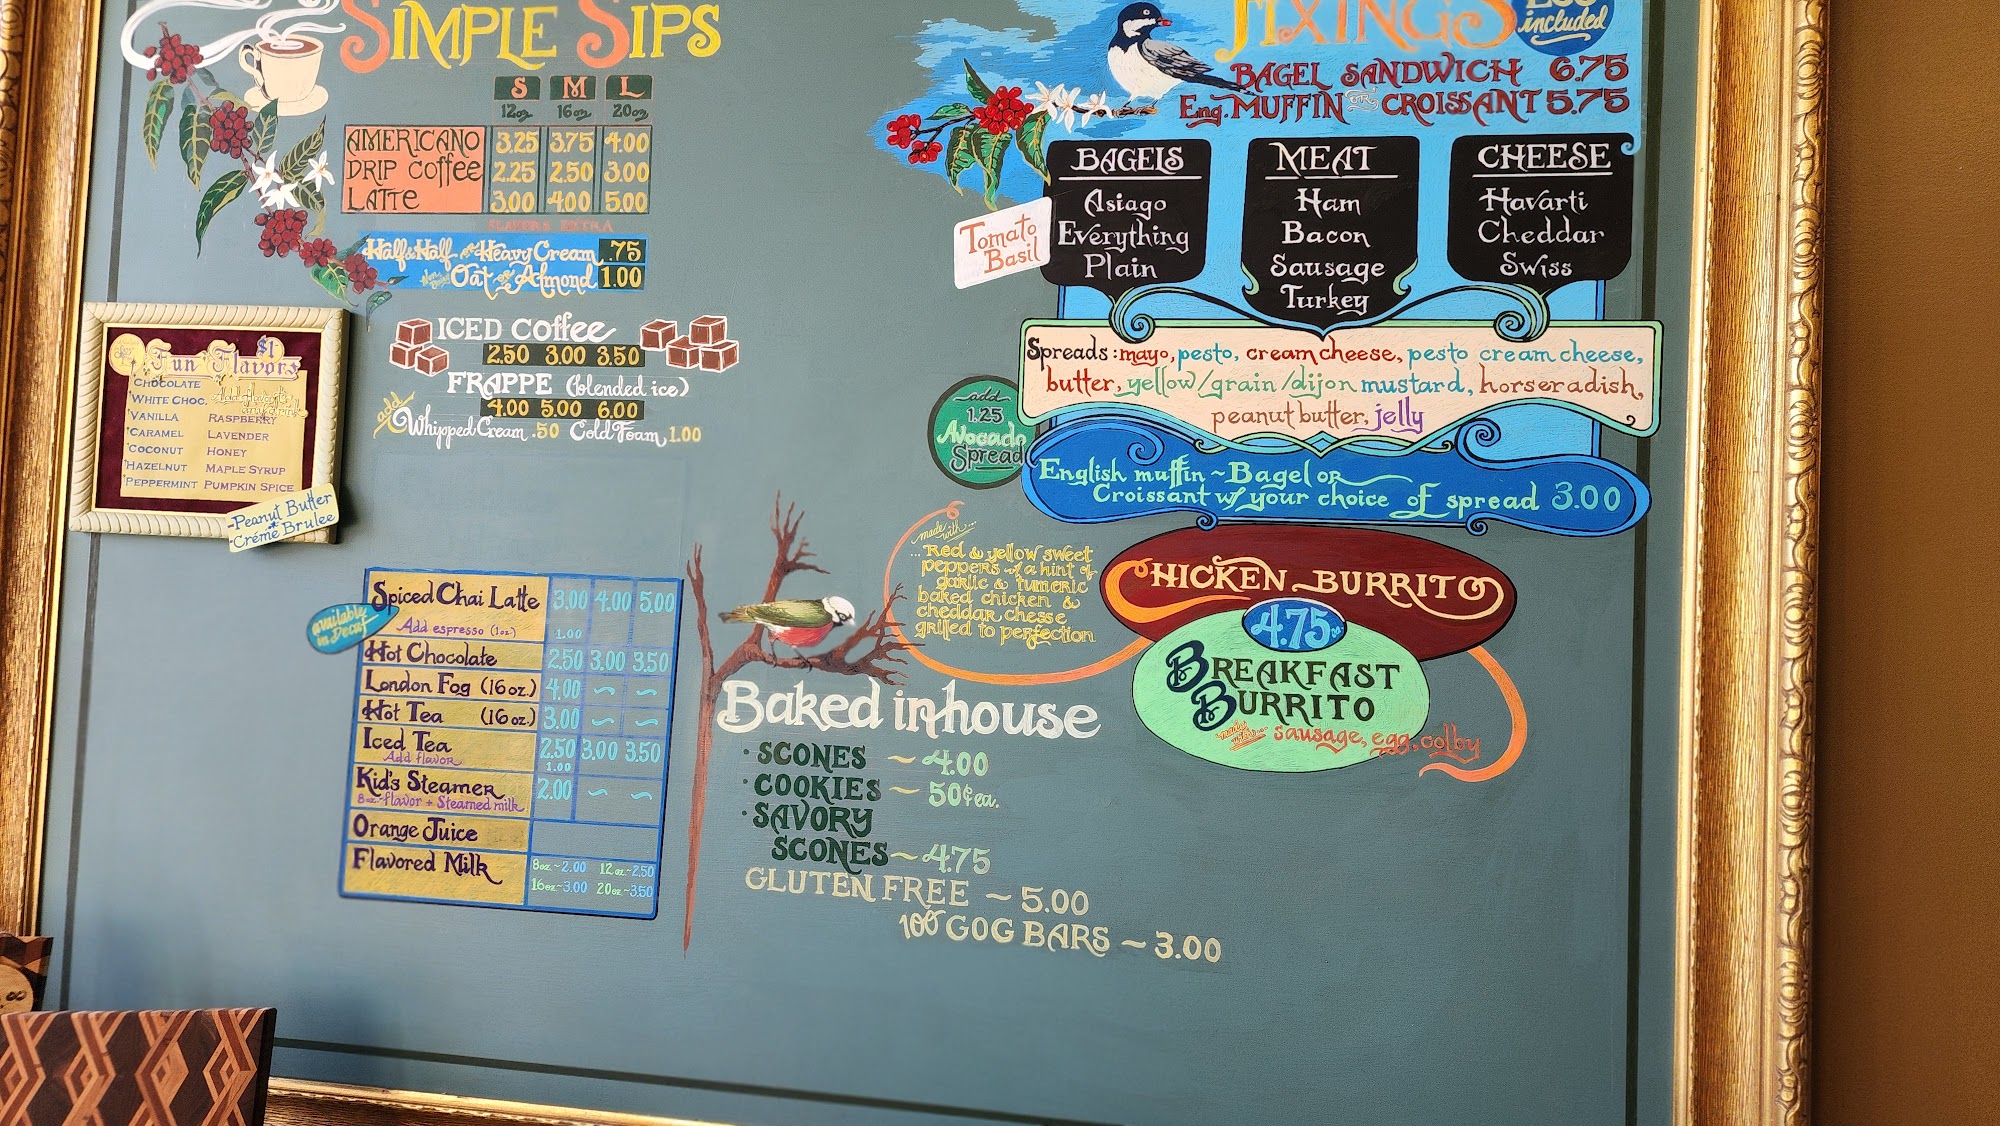 SIMPLE SIPS
S M L
12oz 16oz 20oz
AMERICANO 3.25 3.75 4.00
DRIP COFFEE 2.25 2.50 3.00
LATTE 3.00 4.00 5.00
FLAVORS EXTRA
Half & Half or Heavy Cream .75
Oat or Almond 1.00
ICED COFFEE
2.50 3.00 3.50
FRAPPE (blended ice)
4.00 5.00 6.00
add
Whipped Cream .50 Cold Foam 1.00
$1
Fun Flavors
CHOCOLATE
WHITE CHOC.
VANILLA RASPBERRY
CARAMEL LAVENDER
COCONUT HONEY
HAZELNUT MAPLE SYRUP
PEPPERMINT PUMPKIN SPICE
-Peanut Butter
-Créme Brulee
available
in Decaf
Spiced Chai Latte 3.00 4.00 5.00
Add espresso (1oz.) 1.00
Hot Chocolate 2.50 3.00 3.50
London Fog (16 oz.) 4.00 ~ ~
Hot Tea (16 oz.) 3.00 ~ ~
Iced Tea 2.50 3.00 3.50
Add flavor 1.00
Kid's Steamer 2.00 ~ ~
8oz-flavor + Steamed milk
Orange Juice
Flavored Milk 8oz~2.00 12oz~2.50
16oz~3.00 20oz~3.50
FIXINGS
EGG
included
BAGEL SANDWICH 6.75
Eng. MUFFIN OR CROISSANT 5.75
BAGELS
Asiago
Everything
Plain
Tomato
Basil
MEAT
Ham
Bacon
Sausage
Turkey
CHEESE
Havarti
Cheddar
Swiss
Spreads: mayo, pesto, cream cheese, pesto cream cheese,
butter, yellow/grain/dijon mustard, horseradish,
peanut butter, jelly
add
1.25
Avocado
Spread
English muffin ~ Bagel or
Croissant w/ your choice of spread 3.00
made with...
...Red & yellow sweet
peppers w/ a hint of
garlic & tumeric
baked chicken &
cheddar cheese
grilled to perfection
CHICKEN BURRITO
4.75 ea.
BREAKFAST
BURRITO
made with... sausage, egg, colby
Baked inhouse
· SCONES ~ 4.00
· COOKIES ~ 50¢ ea.
· SAVORY
SCONES ~ 4.75
GLUTEN FREE ~ 5.00
GOG BARS ~ 3.00